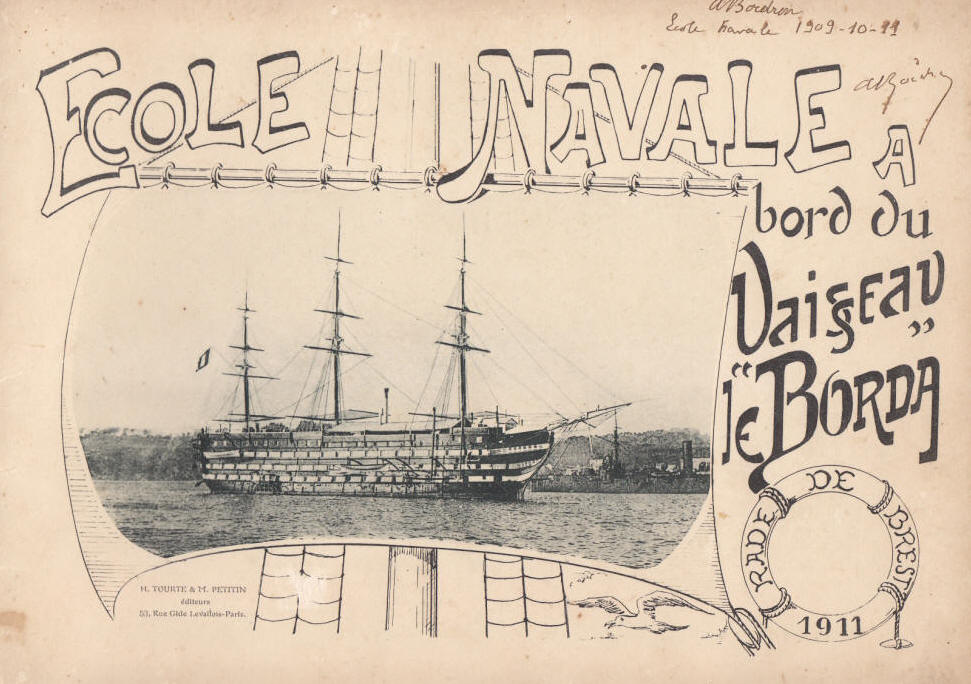 ABordron
Ecole Navale 1909-10-11
ECOLE NAVALE A
bord du
Vaisseau
"le Borda"
RADE DE BREST
1911
H. TOURTE & M. PETITIN
éditeurs
53, Rue Gide Levallois-Paris.